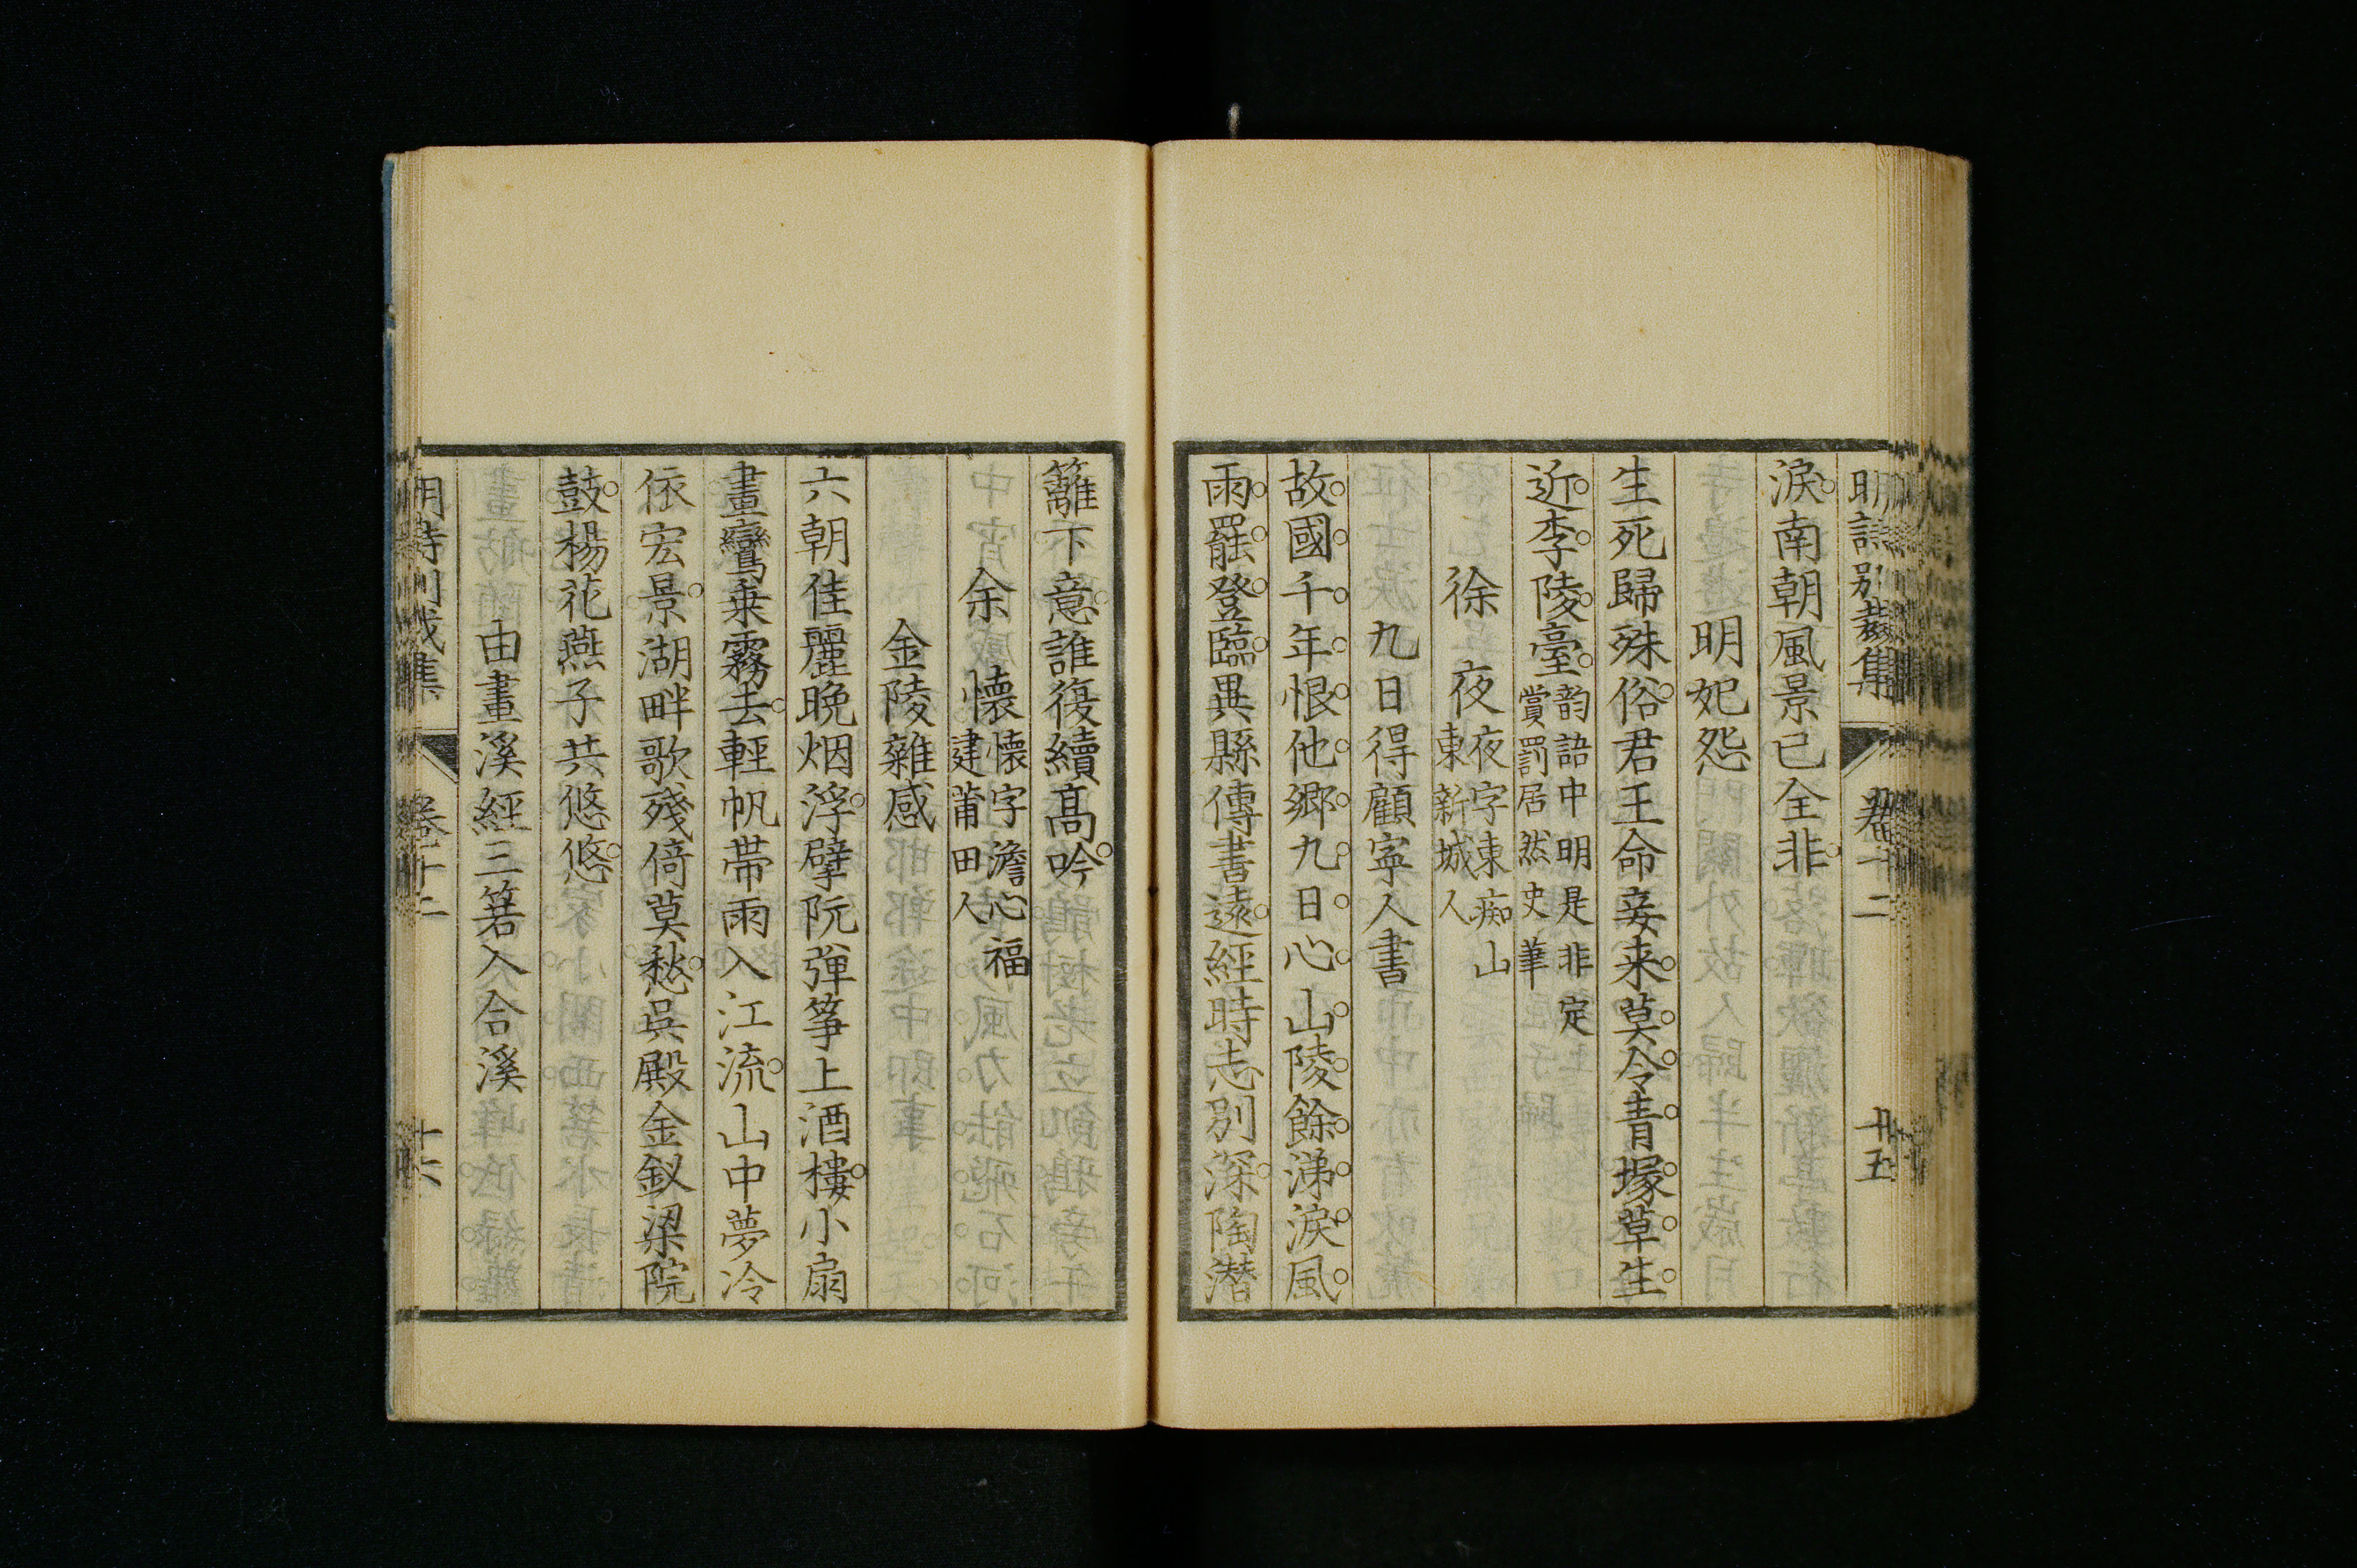 明詩別裁集 卷十二 廿五
淚南朝風景已全非
明妃怨
生死歸殊俗君王命妾来莫令青塚草生
近李陵臺韵語中明是非定賞罰居然史筆
徐夜夜字東痴山東新城人
九日得顧寧人書
故國千年恨他鄉九日心山陵餘涕淚風
雨罷登臨異縣傳書遠經時志別深陶潛
籬下意誰復續髙吟
余懐懐字澹心福建莆田人
金陵雜感
六朝佳麗晩烟浮擘阮彈筝上酒樓小扇
畫鸞乗霧去輕帆帯雨入江流山中夢冷
依宏景湖畔歌殘倚莫愁吳殿金釵梁院
鼓楊花燕子共悠悠
由畫溪經三箬入合溪
明詩別裁集 卷十二 十六